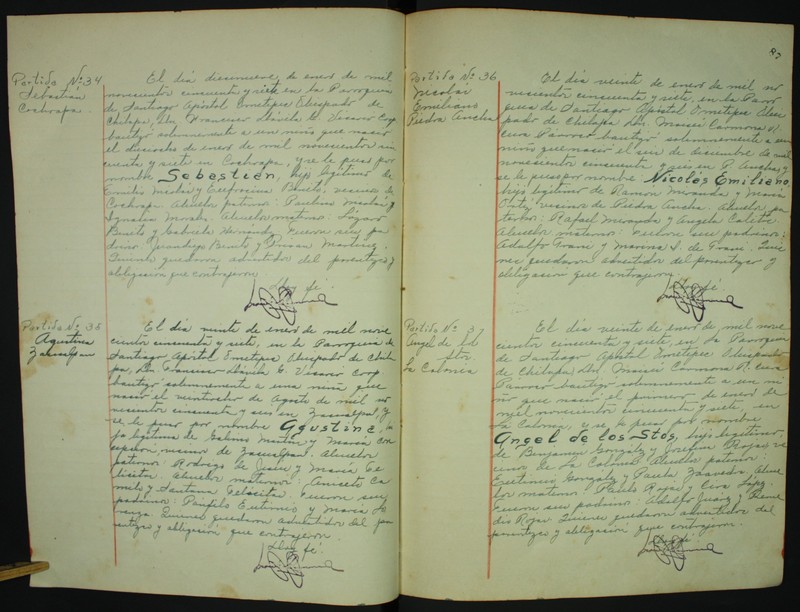 Partida Nº 34
Sebastián
Cochapa.
El día diecinueve de enero de mil
novecientos cincuenta y siete, en la Parroquia
de Santiago Apóstol Ometepec Obispado de
Chilapa, Dn. Francisco Dávila E. Vicario Coop.
bautizó solemnemente a un niño que nació
el dieciocho de enero de mil novecientos cin
cuenta y siete en Cochapa, y se le puso por
nombre Sebastián, hijo legítimo de
Emilio Nicolás y Eufrosina Benito, vecinos de
Cochapa. Abuelos paternos: Paulino Nicolás y
Ignacia Morales. Abuelos maternos: Lázaro
Benito y Gabriela Hernández. Fueron sus pa
drinos: Benito y Martínez.
Quienes quedaron advertidos del parentesco y
obligación que contrajeron.
Doy fé.
Partida Nº 35
Agustina
Zacualpan
El día veinte de enero de mil nove
cientos cincuenta y siete, en la Parroquia de
Santiago Apóstol Ometepec Obispado de Chila
pa, Dn. Francisco Dávila E. Vicario Coop.
bautizó solemnemente a una niña que
nació el veintiocho de agosto de mil no
vecientos cincuenta y seis en Zacualpan, y
se le puso por nombre Agustina, hi
ja legítima de Martín y María Con
cepción, vecinos de Zacualpan. Abuelos
paternos: Rodrigo de Jesús y María Fe
licitas. Abuelos maternos: Aniceto Ca
melo y Santana Felicitas. Fueron sus
padrinos: Panfilo Eutimio y María
Quienes quedaron advertidos del pa
rentesco y obligación que contrajeron.
Doy fé.
87
Partida Nº 36
Nicolás
Emiliano
Piedra Ancha
El día veinte de enero de mil no
vecientos cincuenta y siete, en la Parro
quia de Santiago Apóstol Ometepec Obis
pado de Chilapa Dn. Moisés Carmona R.
Cura Párroco bautizó solemnemente a un
niño que nació el seis de diciembre de mil
novecientos cincuenta y seis en P. Ancha, y
se le puso por nombre Nicolás Emiliano,
hijo legítimo de Ramón Miranda y María
Ortiz, vecinos de Piedra Ancha. Abuelos pa
ternos: Rafael Miranda y Angela Calixto
Abuelos maternos: Fueron sus padrinos:
Adolfo Trani y Marina S. de Trani. Quie
nes quedaron advertidos del parentesco y
obligación que contrajeron.
Doy fé.
Partida Nº 37
Angel de los
Stos
La Colonia
El día veinte de enero de mil nove
cientos cincuenta y siete, en la Parroquia
de Santiago Apóstol Ometepec Obispado
de Chilapa, Dn. Moisés Carmona R. Cura
Párroco bautizó solemnemente a un ni
ño que nació el primero de enero de
mil novecientos cincuenta y siete, en
la Colonia, y se le puso por nombre
Angel de los Stos, hijo legítimo,
de Benjamín González y Josefina Rojas ve
cinos de la Colonia. Abuelos paternos:
Eustimio González y Paula Zavaleta. Abue
los maternos: Pablo Rojas y Cira López.
Fueron sus padrinos: Adolfo y
Rojas Quienes quedaron advertidos del
parentesco y obligación que contrajeron.
Doy fé.